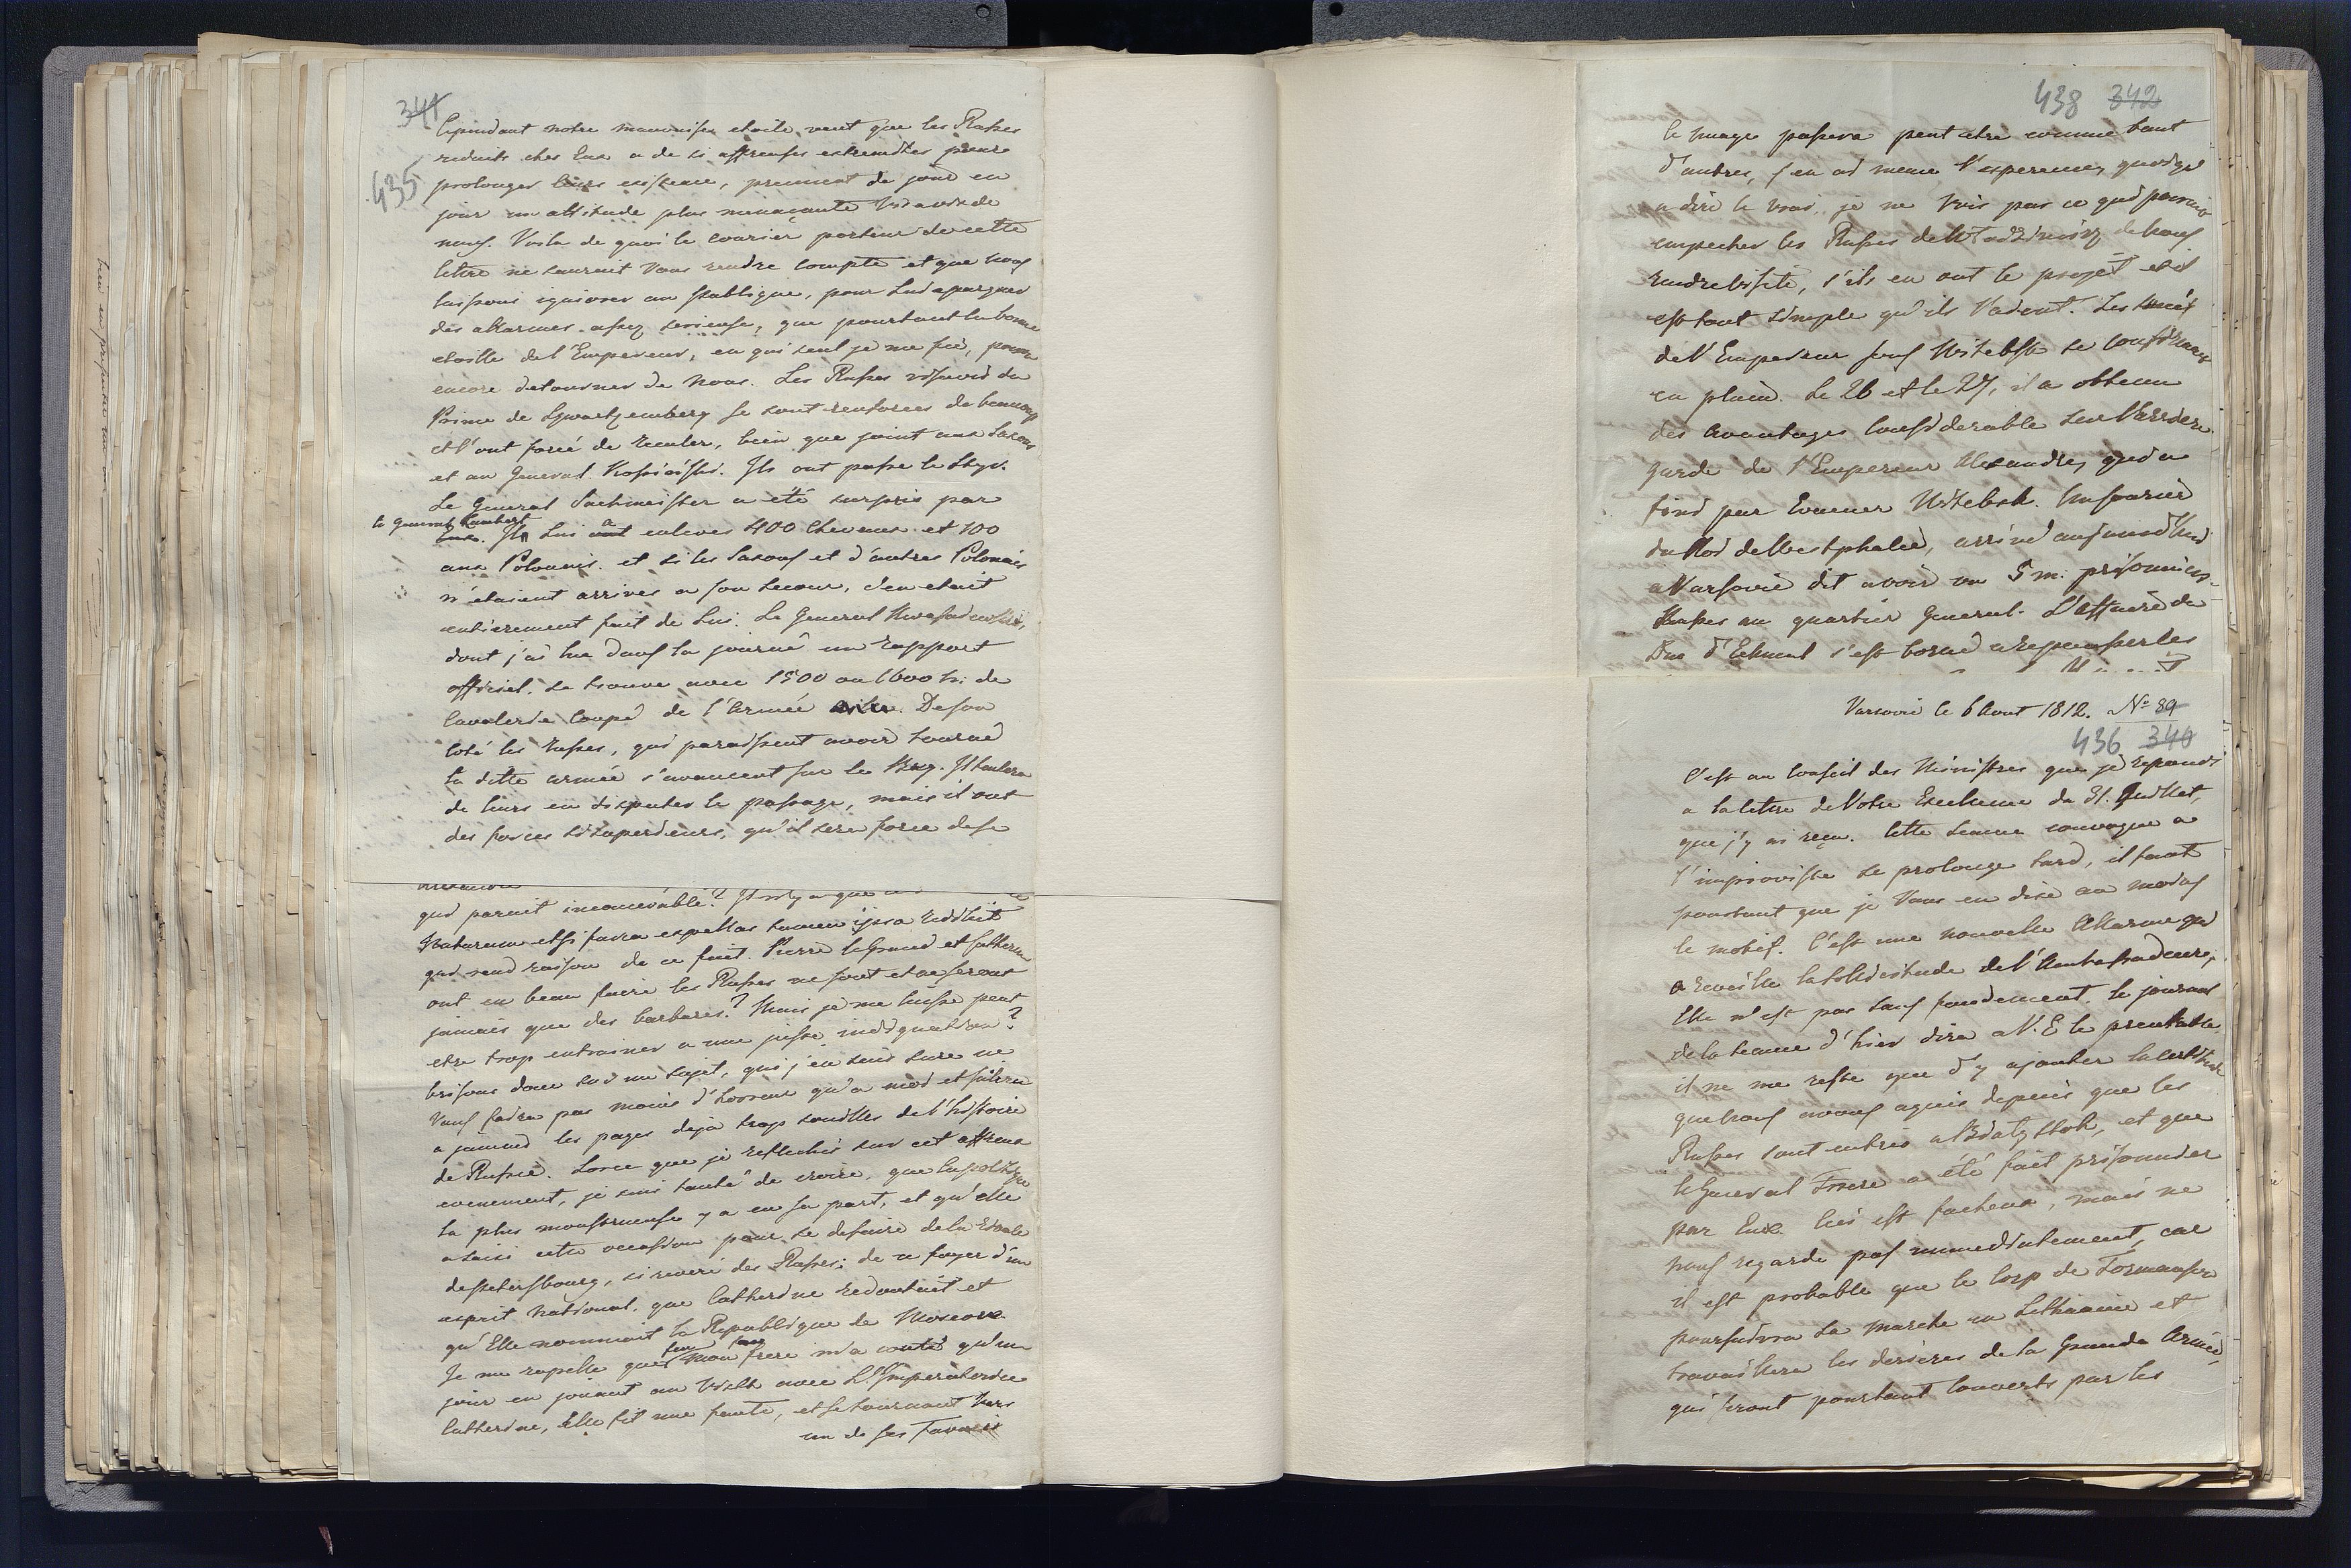 341
435
Cependant notre mauvaise etoile veut que les Russes
reduits chez Eux a de si affreuses extremites pour
prolonger leurs existence, prennent de jour en
jour un attitude plus menaçante vis a vis de
nous. Voila de quoi le courier porteur de cette
lettre ne sauroit Vous rendre compte et que nous
laissons ignorer au Publique, pour Lui epargner
des allarmes assez serieuse, que pourtant la bonne
etoille de l'Empereur, en qui seul je me fie, pourra
encore detourner de nous. Les Russes vis a vis du
Prince de Schwartzemberg se sont renforcés de beaucoup
et l'ont forcé de reculer, bien que joint aux Saxons
et au General Kosinski. Ils ont passe le Styr.
Le General Sachmeister a été surpris par
le General Lambert
Eux. Il Lui a ont enleves 400 Chevaux et 100
aux Polonais. et si les Saxons et d'autres Polonais
n'etaient arrives a son secour, s'en etait
entierement fait de Lui. Le General
dont j'ai lue dans la journé un rapport
officiel, se trouve avec 1500 ou 1600 h. de
Cavalerie coupé de l'Armée. De son
coté les Russes, qui paraissent avoir tourné
la ditte armée s'avancent sur le Bug. Il tentera
de leurs en disputer le passage, mais il ont
des forces si superieurs, qu'il sera force de se
qui parait inconcevable? Il n'y a que
Naturam etsi furca expellas tamen ipsa redibit
qui rend raison de ce fait. Pierre le Grand et Catherine
ont eu beau faire les Russes ne sont et ne seront
jamais que des barbares? Mais je me laisse peut
etre trop entrainer a une juste indignation?
brisons donc sur un sujet, qui j'en suis sure ne
Vous faira pas moins d'horreur qu'a moi et salira
a jamais les pages deja trop souilles de l'histoire
de Russie. Lorce que je reflechis sur cet affreux
evenement, je suis tenté de croire, que la politique
la plus monstrueuse y a eu sa part, et qu'elle
a saisi cette occasion pour se defaire de la rivale
de Petersbourg, si reveré des Russes; de ce foyer d'un
esprit national, que Catherine redoutait et
qu'Elle nommait la Republique de Moscou.
Je me rapelle que feu mon frere m'a conté qu'un
jour en jouant au Visth avec L'Imperatrice
Catherine, Elle fit une faute, et se tournant vers
un de ses Favoris
438 342
le nuage passera peut etre comme tant
d'autres, j'en ai meme l'esperence, quoique
a dire le vrai, je ne vois pas ce qui pourrait
empecher les Russes de Wlodzimirz de nous
rendre visite, s'ils en ont le projet et il
est tout simple qu'ils l'aient. Les succès
de l'Empereur sous Witebsk se confirment
en plein. Le 26 et le 27, il a obtenu
des avantages considerable sur l'arriere
garde de l'Empereur Alexandre, qui a
fini par Evacuer Witebsk. Un fourier
du Roi de Westphalie, arrivé aujourd'hui
a Varsovie dit avoir vu 5 m. prisonniers
Russes au quartier General. L'affaire du
Duc d'Eckmul s'est borné a repousser les
Varsovie le 6 Aout 1812. N° 89
436 340
C'est au Conseil des Ministres que je repond
a la lettre de Votre Excellence du 31. Juillet,
que j'y ai reçu. Cette seance convoquee a
l'improviste se prolonge tard, il faut
pourtant que je Vous en dise au moins
le motif. C'est une nouvelle Allarme qui
a reveille la sollicitude de l'Ambassadeure,
Elle n'est pas sans fondement. Le journal
de la seance d'hier dira a V. E le preallable,
il ne me reste que d'y ajouter la certitude
que nous avons aquis depuis que les
Russes sont entrés a Bialystok, et que
le General Ferere a été fait prisonnier
par Eux. Ceci est facheux, mais ne
nous regarde pas immediatement, car
il est probable que le Corp de Tormansow
poursuivra sa marche en Lithuanie et
travaillera les derieres de la Grande Armée,
qui seront pourtant couverts par les